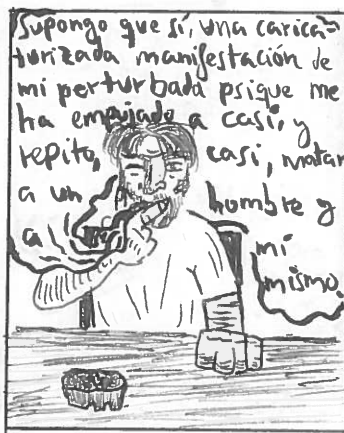 Supongo que sí, una carica-
turizada manifestación de
mi perturbada psique me
ha empujado a casi, y
repito, casi, matar
a un hombre y
a mí
mismo.